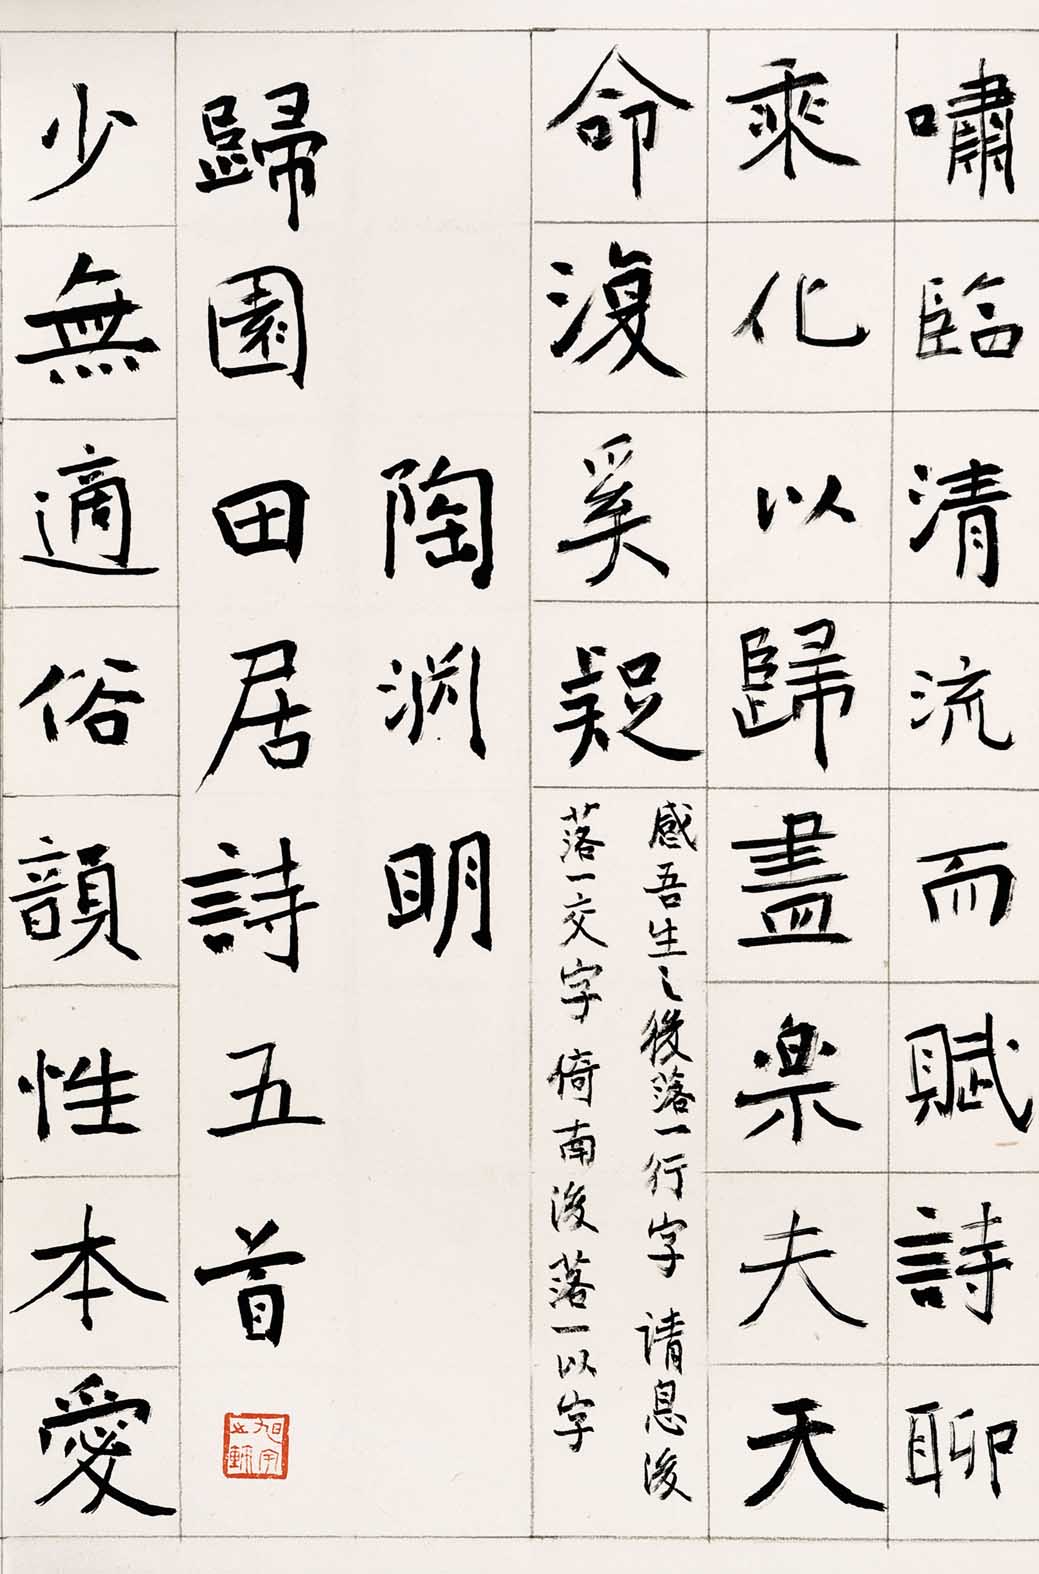 嘯臨清流而賦詩聊
乘化以歸盡樂夫天
命復奚疑
感吾生之後落一行字 请息後
落一交字 倚南後落一以字
陶淵明
歸園田居詩五首
少無適俗韻性本愛